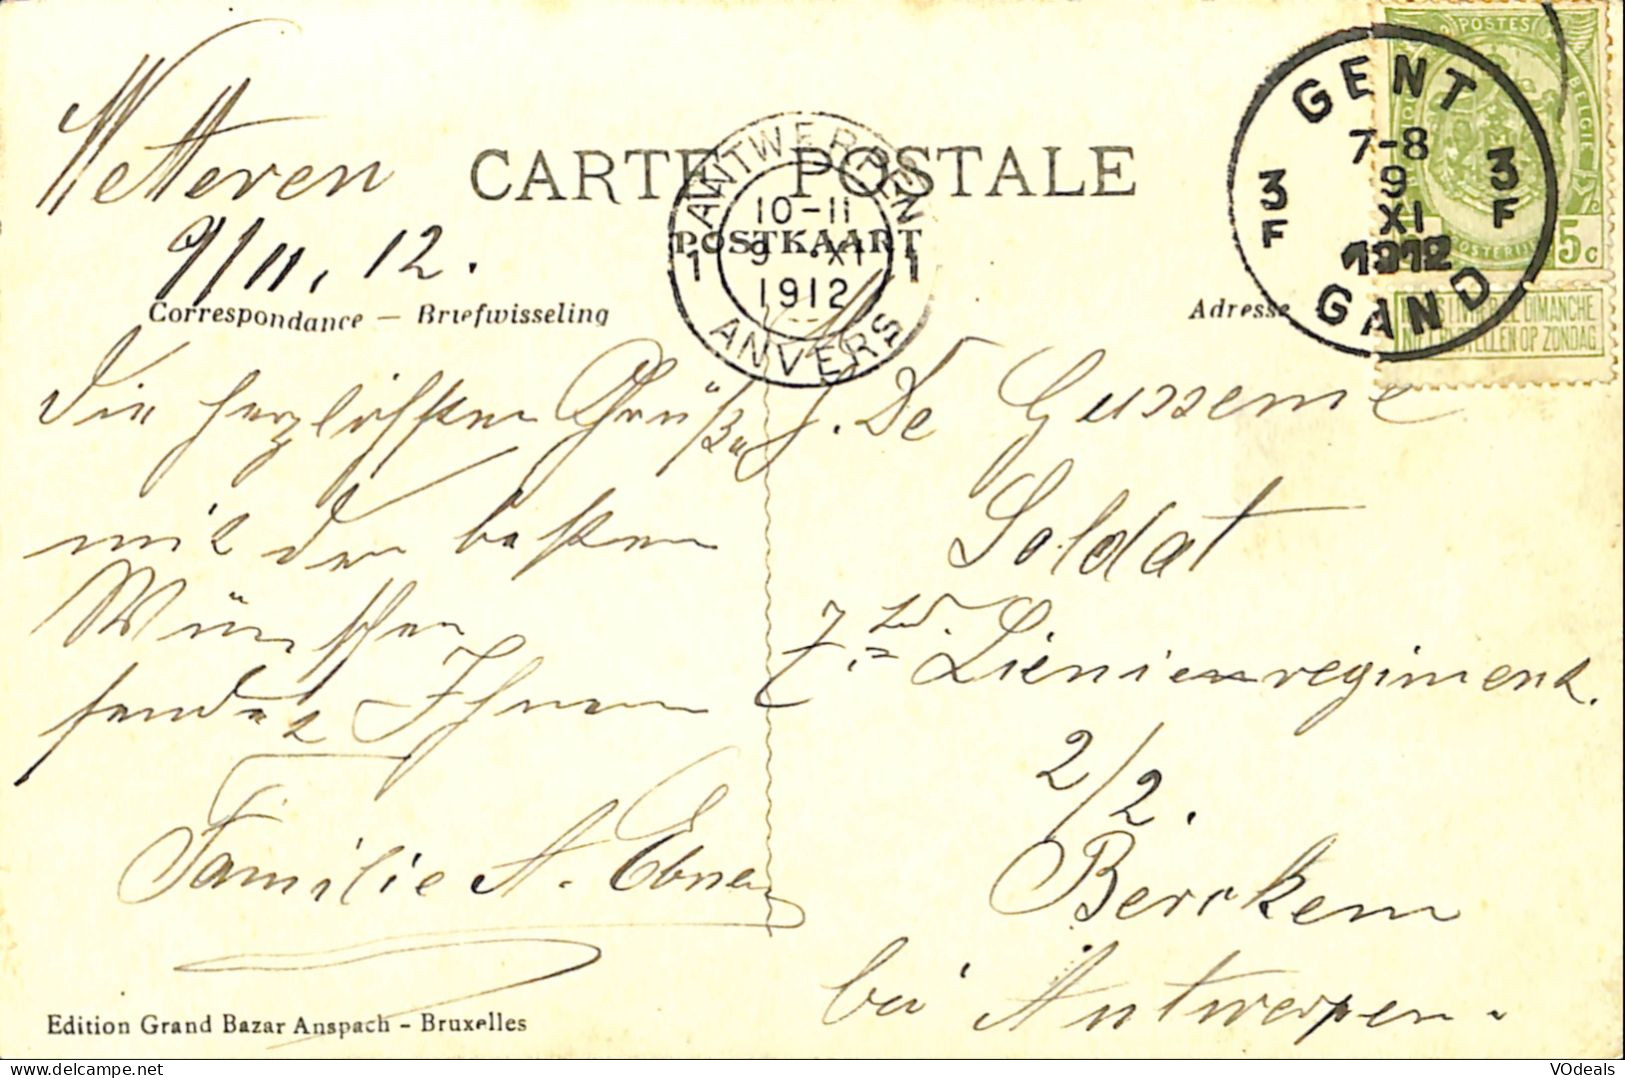 Wetteren
9/11. 12.
CARTE POSTALE
POSTKAART
Correspondance — Briefwisseling
Adresse
ANTWERPEN
10-11
9 XI
1912
1 1
ANVERS
GENT
7-8
9
XI
1912
3 F
3 F
GAND
POSTES
BELGIE
POSTERIJEN
5c
DIMANCHE
NIET BESTELLEN OP ZONDAG
Die herzlichsten Grüße
mit den besten
Wünschen
sendet Ihnen
Familie A. Ebner
J. De Gusseme
Soldat
7. Linienregiment.
2/2.
Berckem
bei Antwerpen.
Edition Grand Bazar Anspach - Bruxelles
VOdeals